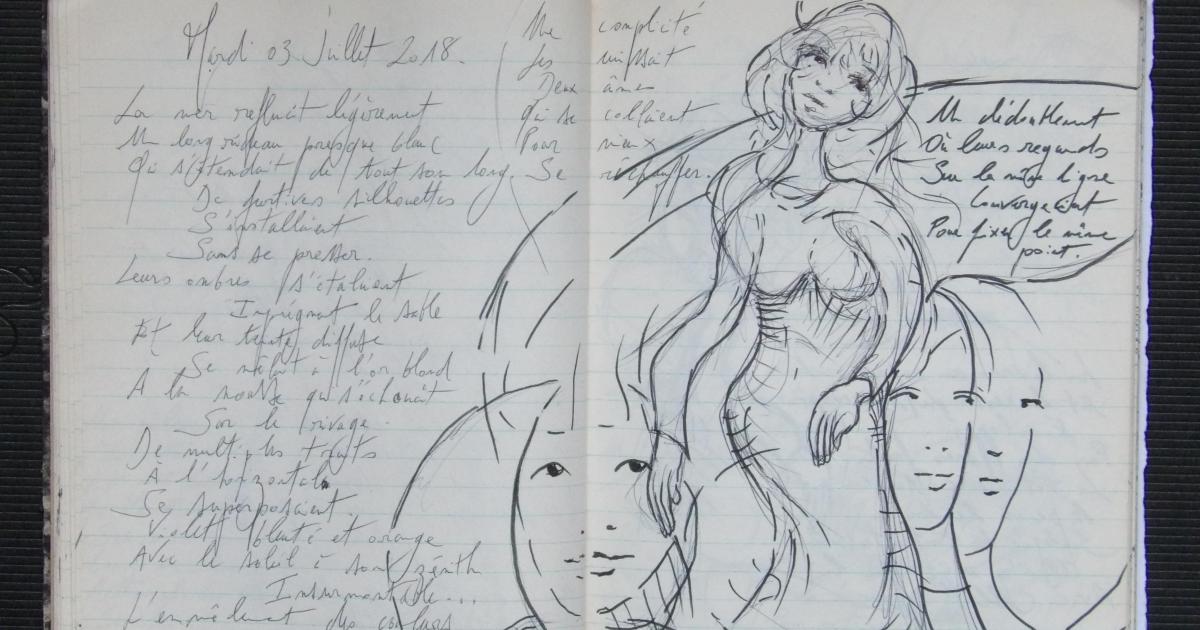 Mardi 03 Juillet 2018.
La mer refluait légèrement
Un long rideau presque blanc
Qui s'étendait de tout son long.
De furtives silhouettes
S'installaient
Sans se presser.
Leurs ombres s'étalaient
Imprégnant le sable
Et leur teinte diffuse
Se mêlait à l'or blond
A la mousse qui s'échouait
Sur le rivage.
De multiples traits
À l'horizontale
Se superposaient.
Violet, bleuté et orange
Avec le soleil à son zénith
Insurmontable...
L'empêchant des couleurs
Une complicité
Les unissait
Deux âmes
Qui se collaient
Pour mieux
Se réchauffer.
Un dédoublement
Où leurs regards
Sur la même ligne
Convergeaient
Pour fixer le même
point.